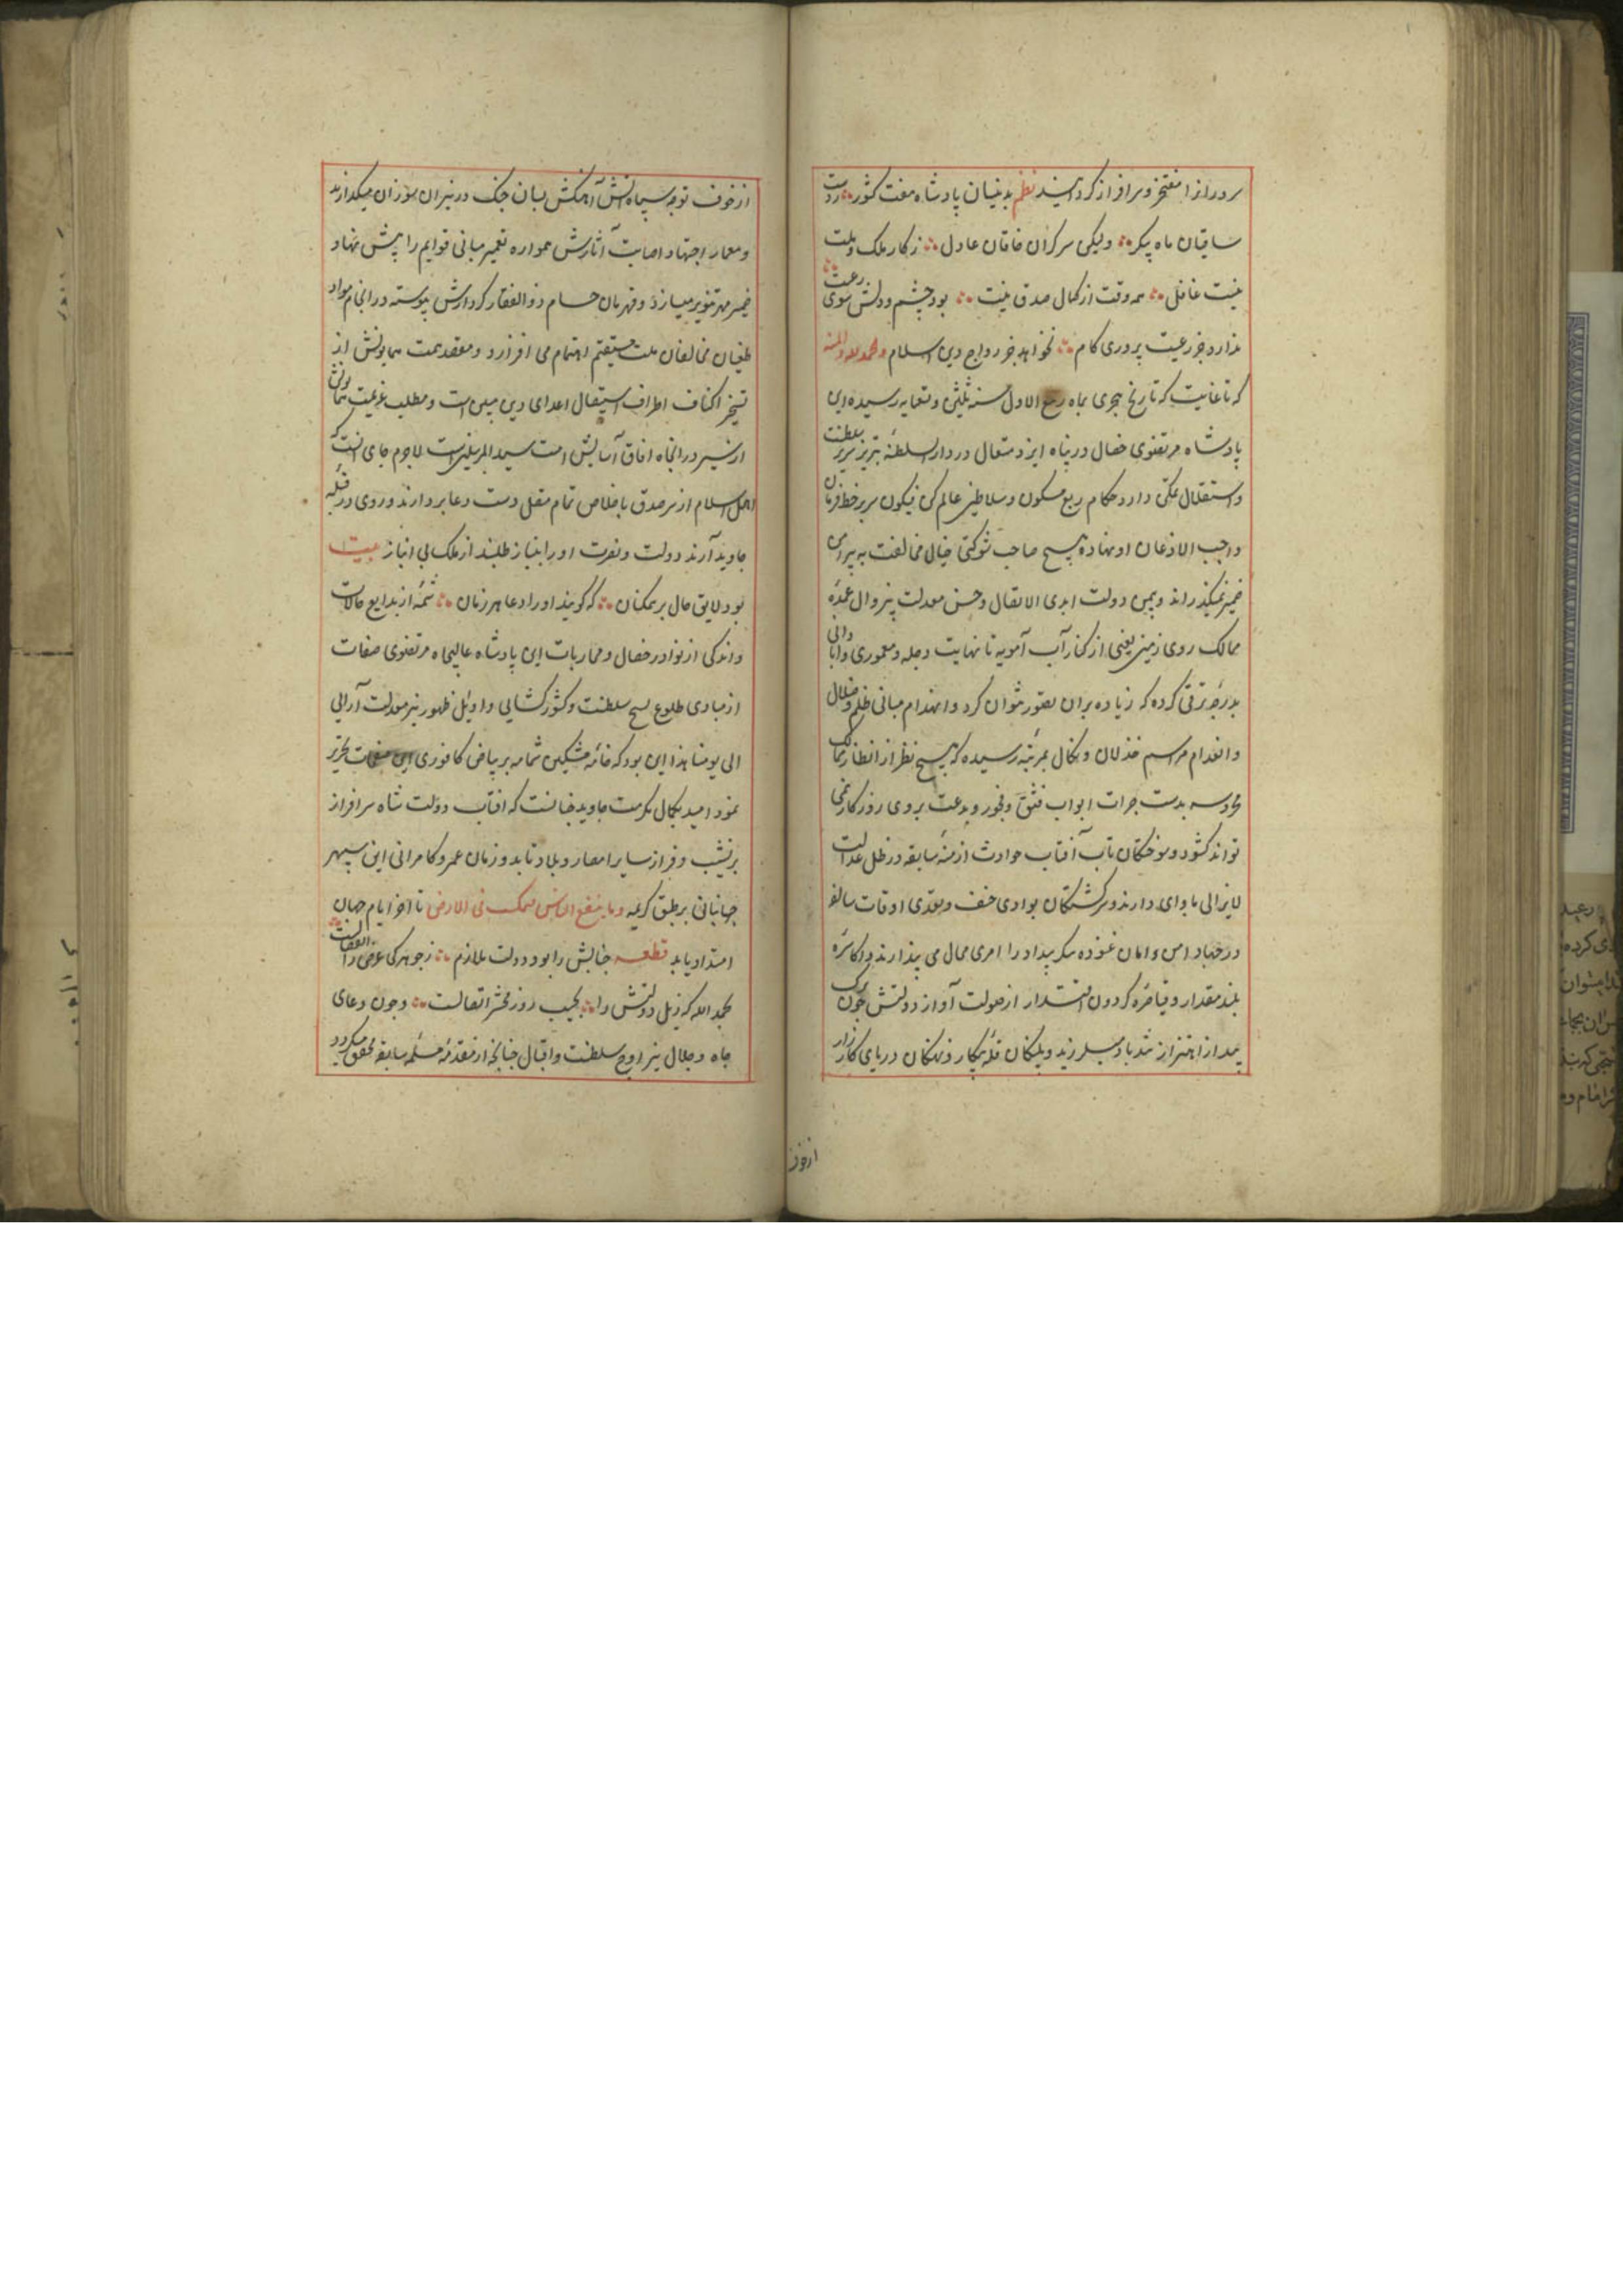 سرورانرا مفتخر و سرافراز کردانیدند نظم بدینسان پادشاه هفت کشور ∴ ز دست
ساقیان ماه پیکر ∴ ولیکن سرکران خاقان عادل ∴ ز کار ملک و ملت
نیست غافل ∴ همه وقت از کمال صدق نیت ∴ بود چشم و دلش سوی رعیت
ندارد جز رعیت پروری کام ∴ نخواهد جز رواج دین اسلام و الحمد لله و المنه
که تا غایت که تاریخ هجری بماه ربیع الاول سنه ثلثین و تسعمایه رسیده این
پادشاه مرتضوی خصال در پناه ایزد متعال در دار السلطنه تبریز بر سریر سلطنت
و استقلال تمکن دارد و حکام ربع مسکون و سلاطین عالم کن فیکون سر بر خط فرمان
واجب الاذعان او نهاده هیچ صاحب شوکتی خیال مخالفت به پیرامن
ضمیر نمیکذراند و بیمن دولت ابدی الاتصال و حسن معدلت بیزوال عمده
ممالک روی زمین یعنی از کنار آب آمویه تا نهایت دجله و معموری و آبادانی
بدرجه ترقی کرده که زیاده بران تصور نتوان کرد و انهدام مبانی ظلم و ضلال
و انعدام مراسم خذلان و نکال بمرتبه رسیده که هیچ نظر از انظار ممالک
محروسه بدست جرات ابواب فسق و فجور و بدعت بروی روزکار نمی
تواند کشود و سوختکان تاب آفتاب حوادث ازمنه سابقه در ظل عدالت
لایزالی ماوای دارند و سرکشتکان بوادی حیف و تعدی اوقات سالفه
در مهاد امن و امان غنوده بیداد را امری محال می پندارند و اکاسره
بلند مقدار و قیاصره کردون اقتدار از صولت آواز دولتش چون برک
بید از اهتزاز تند باد میلرزند و پلنکان قله پیکار و نهنکان دریای کارزار
از خوف
از خوف توجه سپاه آتش آهنکش بسان در نیران سوزان میکدازند
و معمار اجتهاد اصابت آثارش همواره تعمیر مبانی قوایم را پیش نهاد
ضمیر مهر تنویر میسازد و قهرمان حسام ذو الفقار کردارش پیوسته در انجام مواد
طغیان مخالفان ملت مستقیم اهتمام می افرازد و مقصد همت همایونش از
تسخیر اکناف اطراف استیصال اعدای دین مبین است و مطلب عزیمت همایونش
از سیر در انحاء افاق آسایش امت سید المرسلین است لاجرم جای آنست که
اهل اسلام از سر صدق باخلاص تمام دست دعا بردارند و روی در قبله
جاوید آرند دولت و نصرت او را بنیاز طلبند از ملک بی انباز بیت
بود لایق حال بر ممکنان ∴ که کویند او را دعا هر زمان ∴ شمه از بدایع حالات
و اندکی از نوادر خصال و محاربات این پادشاه عالیجاه مرتضوی صفات
از مبادی طلوع صبح سلطنت و کشور کشایی و اوایل ظهور نیر معدلت آرایی
الی یومنا هذا این بود که خامه مشکین شمامه بر بیاض کافوری این صفحات تحریر
نمود امید بکمال مکرمت جاوید چنانست که افتاب دولت شاه سرافراز
بر نشیب و فراز سایر امصار و بلاد تابد و زمان عمر و کامرانی این سپهر
جهانبانی بر طبق کریمه و ما ینفع الناس فیمکث فی الارض تا اخر ایام جهان
امتداد یابد قطعه جنابش را بود دولت ملازم ∴ ز جوهر کی عرض را
بحمد الله که ذیل دولتش را ∴ بجیب روز محشر اتصالست ∴ و چون دعای
جاه و جلال نیر اوج سلطنت و اقبال چنانچه از مقدمه مسلمه سابقه محقق میکردد